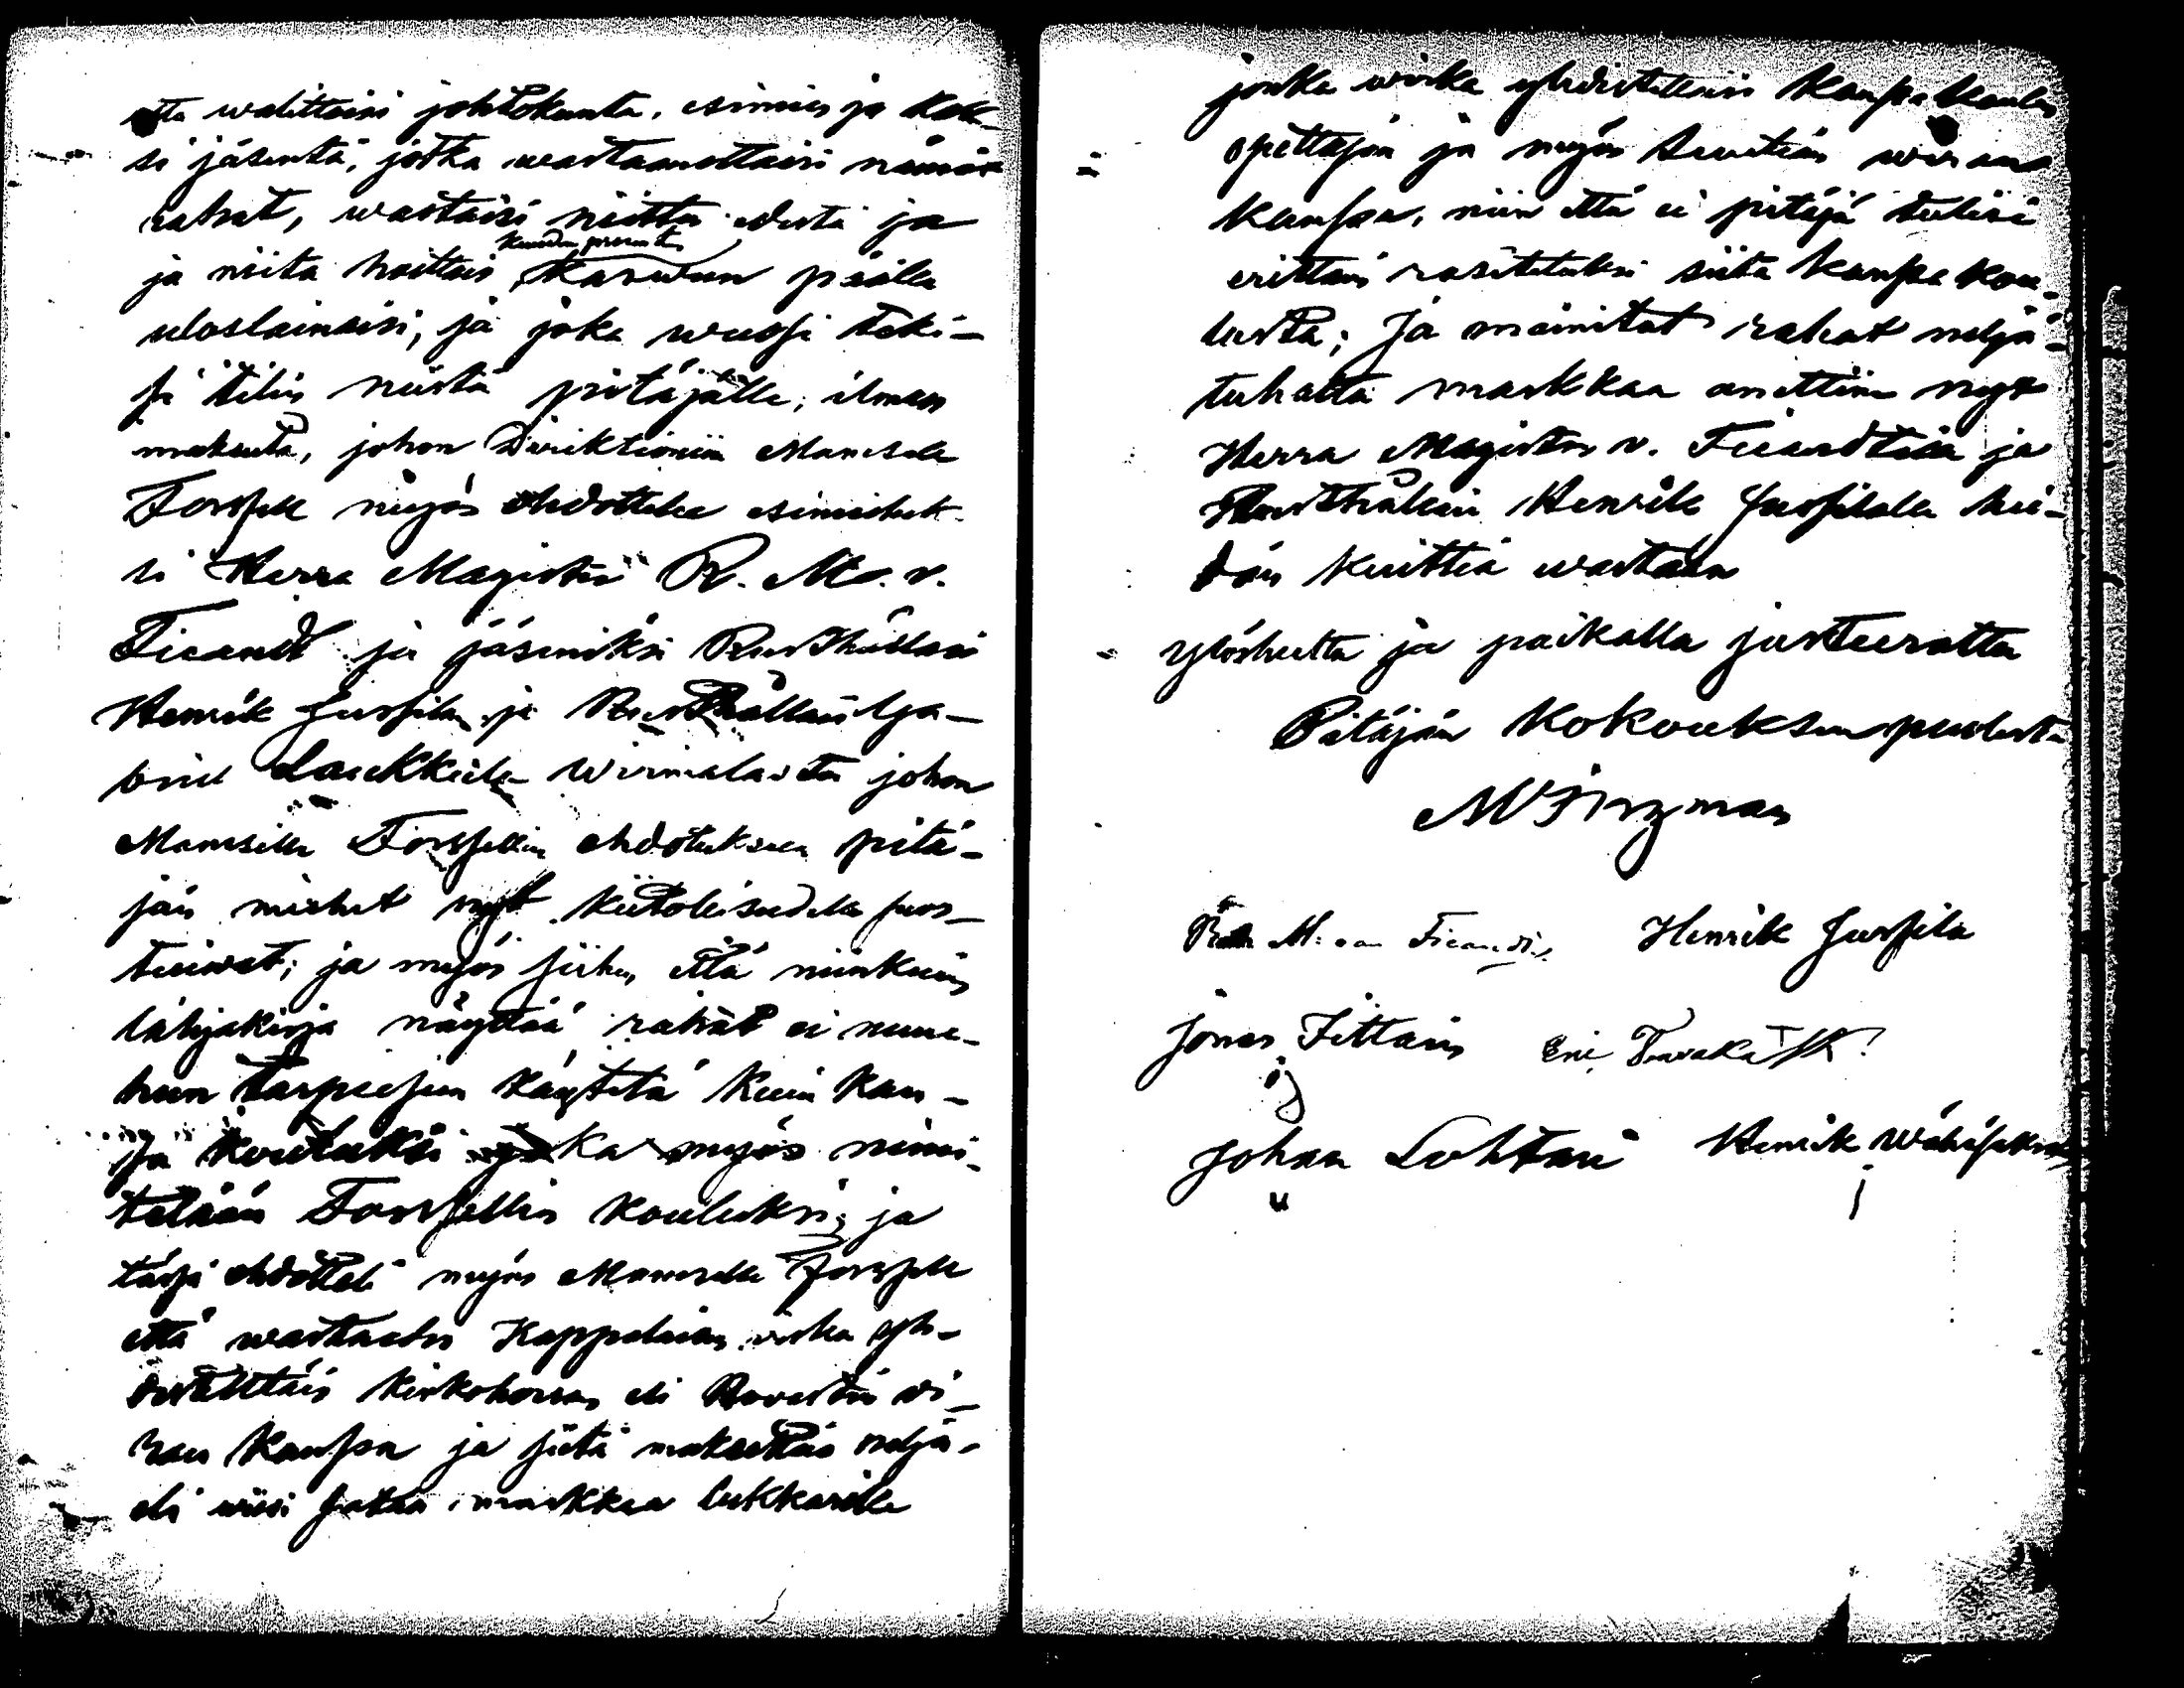 että walittaisi johtokunta, esimies ja kak-
si jäsentä, jotka wastaanottaisi nämät
rahat, wastaisi niitten edestä ja
ja niita hoitais kuuden prosentin kaswun päälle
uloslainaisi, ja joka wuosi teki-
si tilin niistä pitäjälle, ilman
maksuta, johon Direktioniin Mamselle
Forssell myös ehdottelee esimiehek-
si Herra Magister R. M. v.
Fieandt ja jäseniksi Rusthållari
Henrik Jussila ja Rusthållari
Laukkila Wirmalasta johon
Mamselle Forssellin ehdotuksen pitä-
jän miehet nyt kiitollisudella suos-
tuiwat; ja myös siihen että niinkuin
lahjakirja näyttää rahat ei muu-
hun tarpeesen käytetä kuin kan-
sa kouluksi joka myös nimi-
tetään Forssellin kouluksi; ja
täsä ehdotteli myös Mamselle Forssell
että wastaedes Kappalaisen wirka yh-
distettäis kirkkoherran eli Prowastin wi-
ran kanssa ja siitä maksettais neljä-
eli wiisi sataa markkaa lukkarille
jonka wirka yhdistettäisi kansa koulun
opettajan ja myös suntion wiran
kanssa, niin että ei pitäjä tulisi
erittäin rasitetuksi siitä kansa kou-
lusta; Ja mainitut rahat neljä-
tuhatta markkaa anettiin nyt
Herra Magister v. Fieandtin ja
Rusthållari Henrik Jussilalle hei-
dän kuittia wastaan
ylösluettu ja paikalla justeerattu
Pitäjän Kokouksen puolesta
M. v. Fieandt Henrik Jussila
Jonas Fittari
Johan Lohtari Henrik